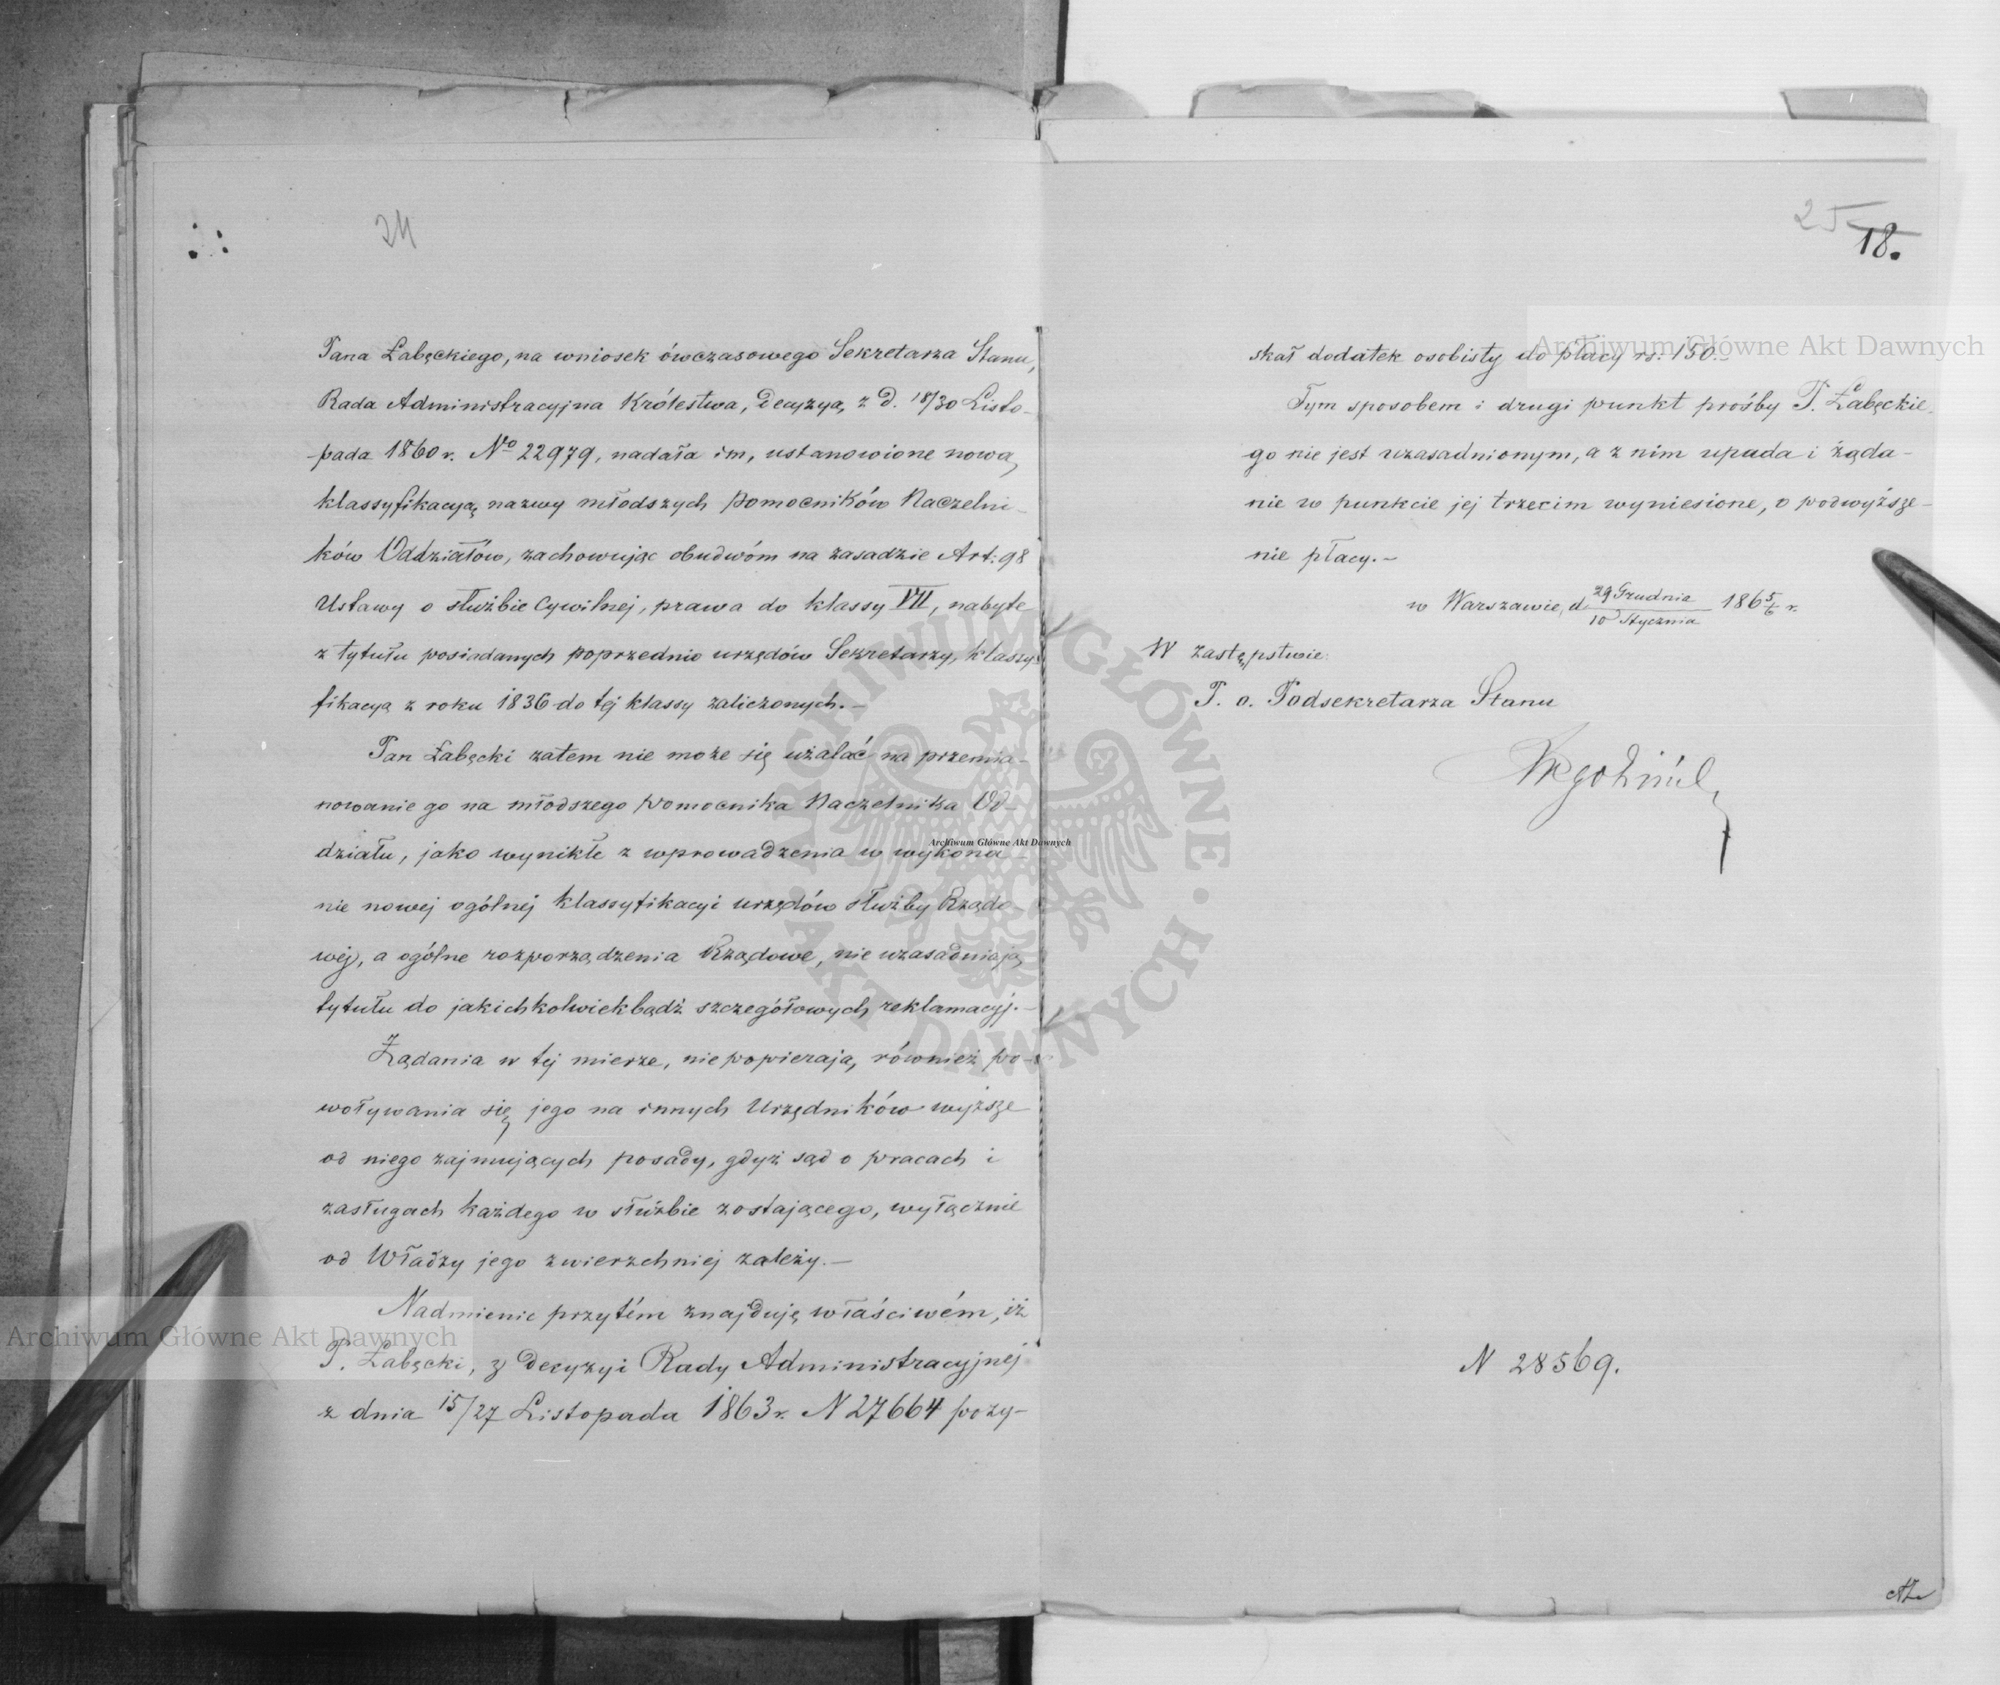 24
Pana Łabęckiego, na wniosek ówczasowego Sekretarza Stanu,
Rada Administracyjna Królestwa, decyzyą z d. 18/30 Listo-
pada 1860 r. No 22979, nadała im, ustanowione nową
klassyfikacyą nazwy młodszych pomocników Naczelni-
ków Oddziałów, zachowując obudwóm na zasadzie Art: 98
Ustawy o służbie Cywilnej, prawa do klassy VII, nabyte
z tytułu posiadanych poprzednio urzędów Sekretarzy, klassy-
fikacyą z roku 1836 do tej klassy zaliczonych.—
Pan Łabęcki zatem nie może się użalać na przemia-
nowanie go na młodszego pomocnika Naczelnika Od-
działu, jako wynikłe z wprowadzenia w wykona-
nie nowej ogólnej klassyfikacyi urzędów służby Rządo-
wéj, a ogólne rozporządzenia Rządowe, nie uzasadniają
tytułu do jakichkolwiekbądź szczegółowych reklamacyj.—
Żądania w tej mierze, nie popierają również po-
woływania się jego na innych Urzędników wyższe
od niego zajmujących posady, gdyż sąd o pracach i
zasługach każdego w służbie zostającego, wyłącznie
od Władzy jego zwierzchniej zależy.—
Nadmienić przytém znajduję właściwém, iż
P. Łabęcki, z decyzyi Rady Administracyjnej
z dnia 15/27 Listopada 1863 r. N 27664 pozy-
25
18.
skał dodatek osobisty do płacy rs: 150.—
Tym sposobem i drugi punkt prośby P. Łabęckie-
go nie jest uzasadnionym, a z nim upada i żąda-
nie w punkcie jej trzecim wyniesione, o podwyższe-
nie płacy.—
w Warszawie, d. 29 Grudnia/10 Stycznia 1865/6 r.
W zastępstwie
P. o. Podsekretarza Stanu
N 28569.
Archiwum Główne Akt Dawnych
Archiwum Główne Akt Dawnych
Archiwum Główne Akt Dawnych
ARCHIWUM GŁÓWNE · AKT DAWNYCH ·